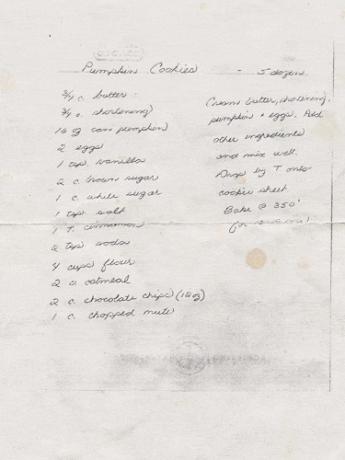 Pumpkin Cookies - 5 dozens
3/4 c. butter
3/4 c. shortening
16 oz can pumpkin
2 eggs
1 tsp. vanilla
2 c. brown sugar
1 c. white sugar
1 tsp salt
1 T. cinnamon
2 tsp soda
4 cups flour
2 c. oatmeal
2 c. chocolate chips (12oz)
1 c. chopped nuts
Cream butter, shortening,
pumpkin + eggs. Add
other ingredients
and mix well.
Drop by T onto
cookie sheet.
Bake @ 350°